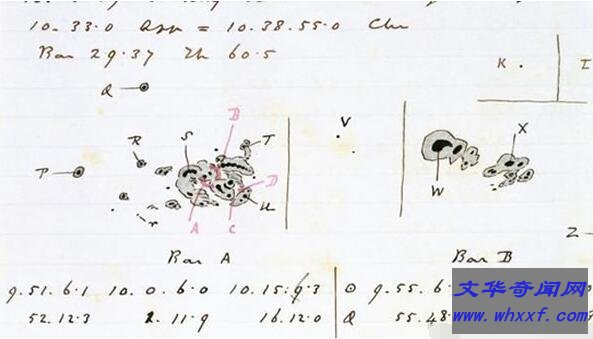 10.33.0 App = 10.38.55.0 Chr
Bar 29.37 Th 60.5
Q
K
I
B
V
X
R
S
T
P
W
D
U
A
C
Z
Bar A
Bar B
9.51.6.1 10.0.6.0 10.15.9.3
52.12.3 2.11.9 16.12.0
9.55.6
55.48
文华奇闻网
www.whxxf.com